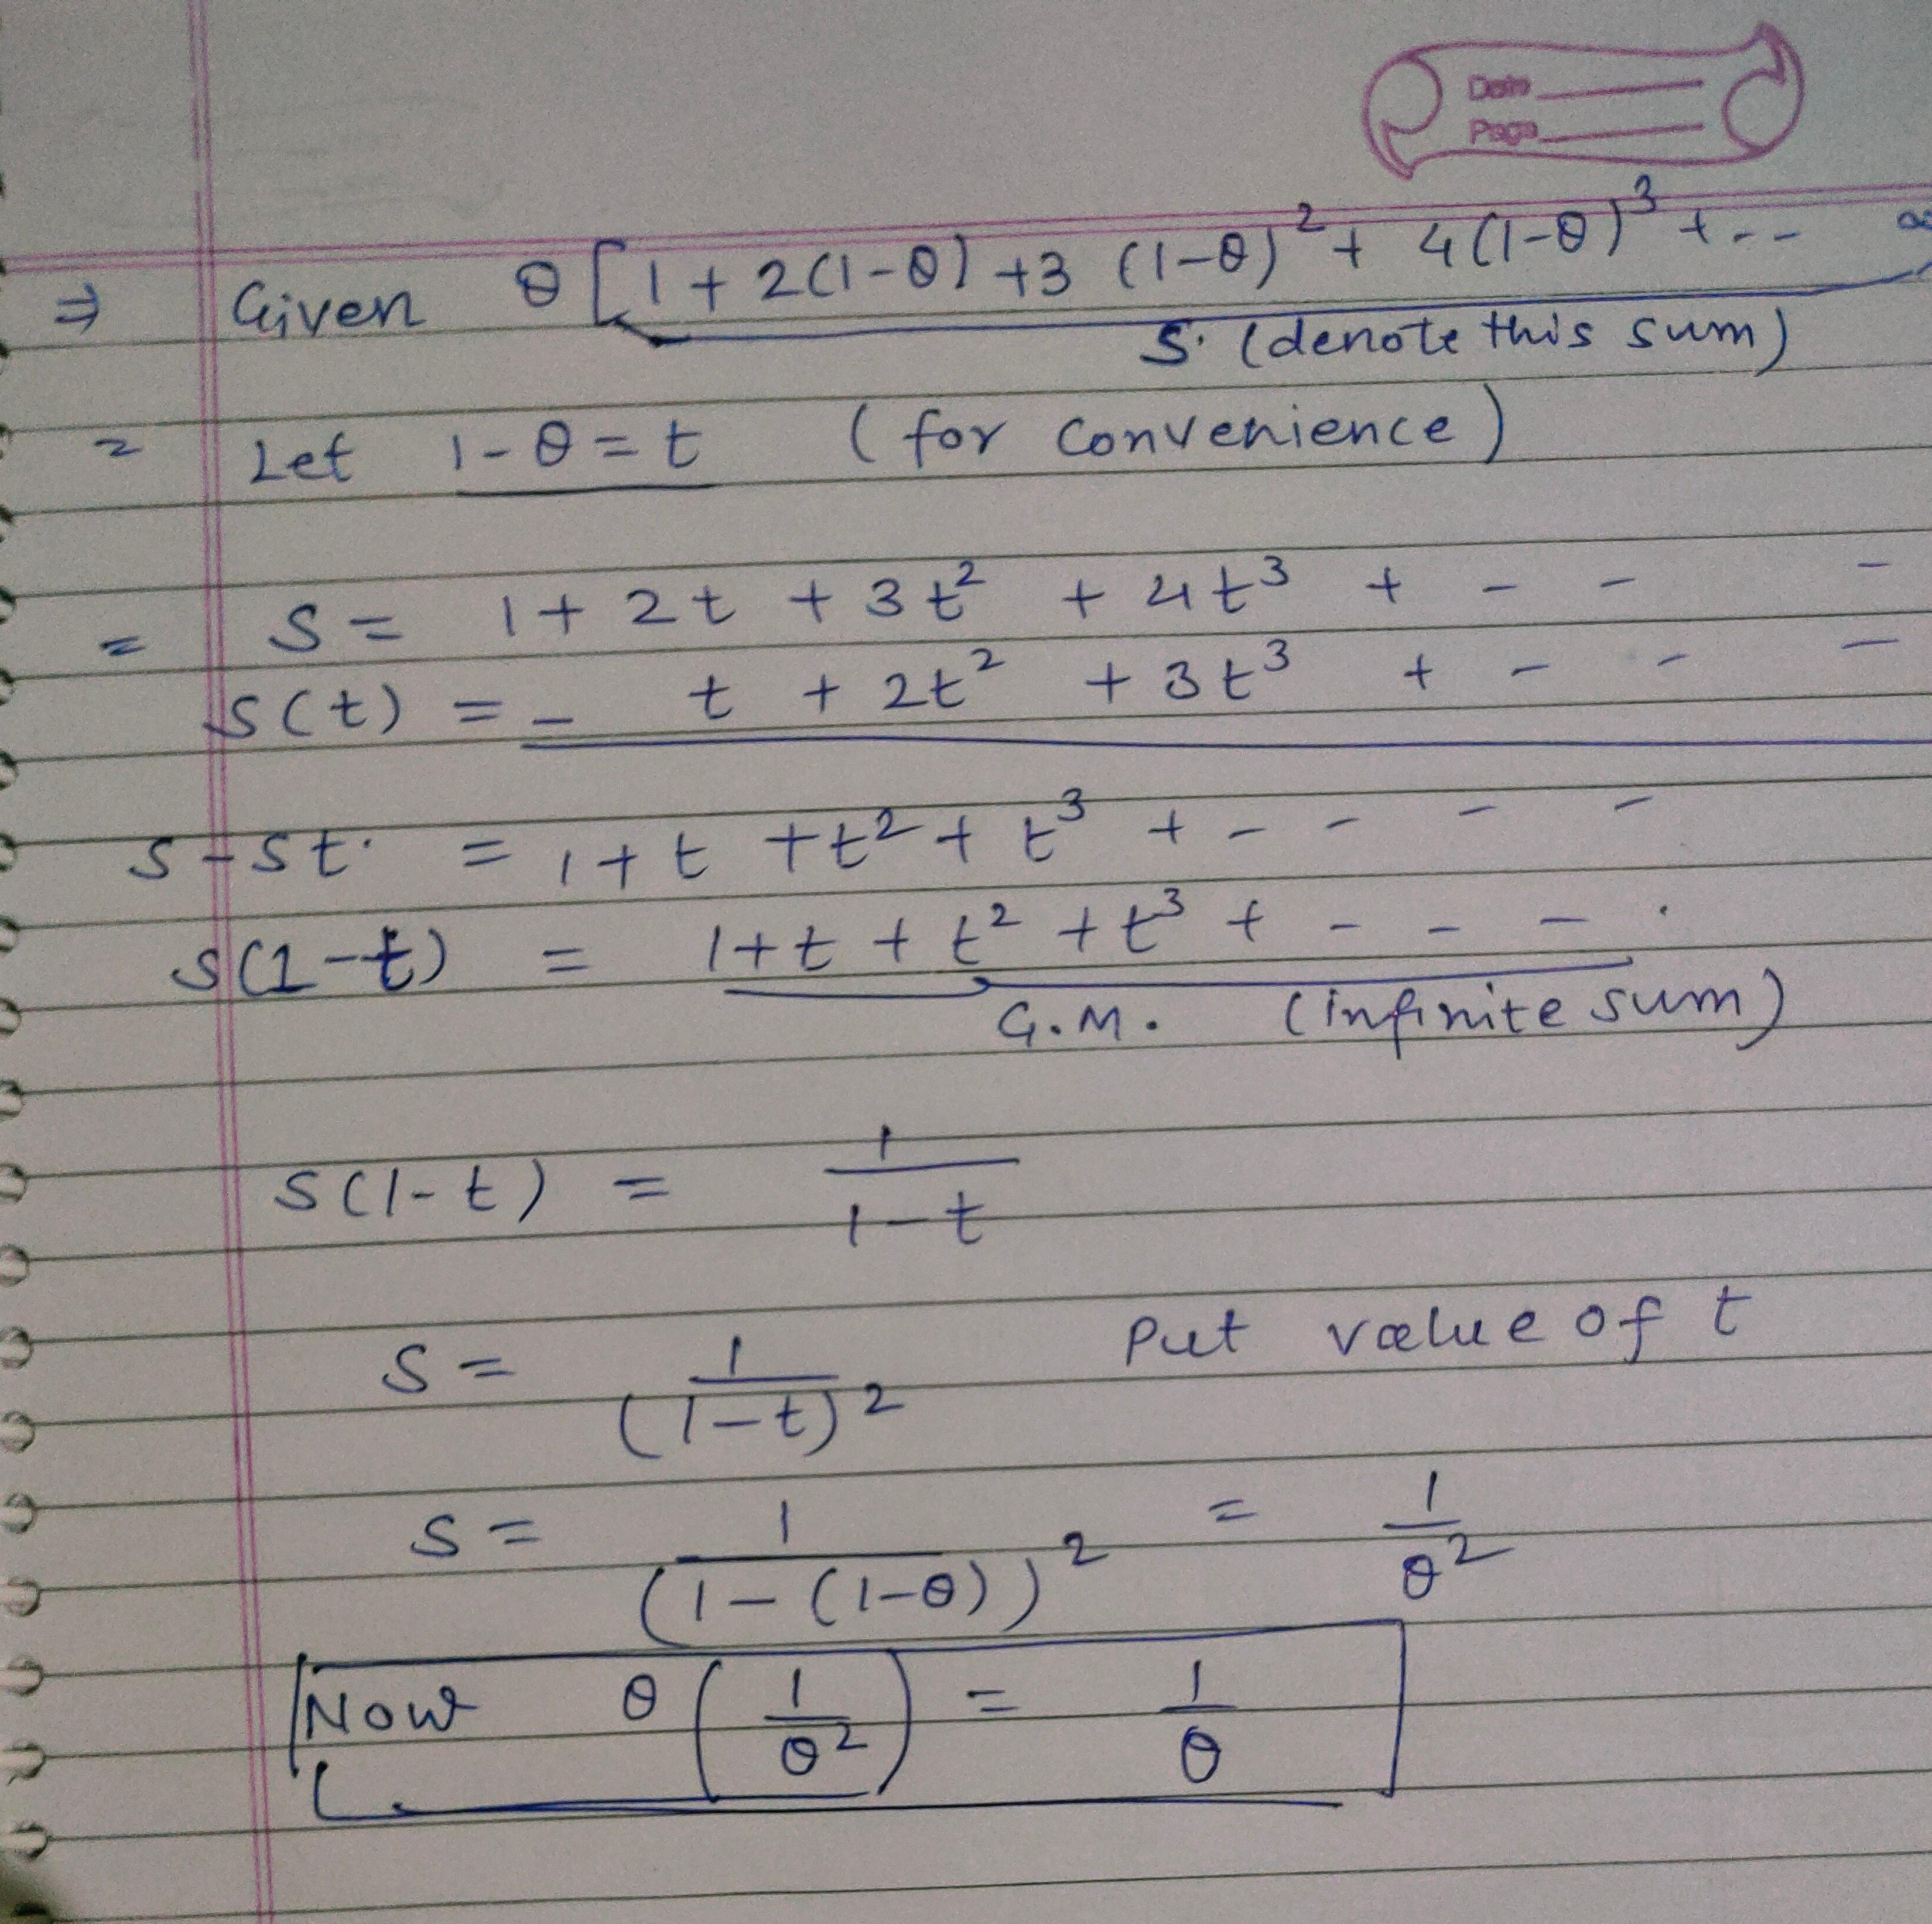 Date
Page
⇒ Given θ [1 + 2(1-θ) + 3 (1-θ)² + 4(1-θ)³ + -- ∞
S. (denote this sum)
= Let 1-θ = t (for convenience)
= S = 1 + 2t + 3t² + 4t³ + - - -
S(t) = - t + 2t² + 3t³ + - - -
S - St. = 1 + t + t² + t³ + - - - -
S(1-t) = 1 + t + t² + t³ + - - - .
G.M. (infinite sum)
S(1-t) = 1/(1-t)
S = 1/(1-t)² Put value of t
S = 1/(1-(1-θ))² = 1/θ²
Now θ (1/θ²) = 1/θ